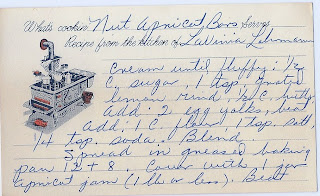 What's cookin' Nut Apricot Bars Serves
Recipe from the kitchen of LaVinia Lehmann
Cream until fluffy: 1/2
C. sugar, 1 tsp. grated
lemon rind, 1/2 C. butter
Add: 2 egg yolks, beat
Add: 1 C. flour, 1 tsp. salt,
1/4 tsp. soda. Blend
Spread in greased baking
pan 12 + 8. Cover with 1 jar
apricot jam (1 lb or less). Beat